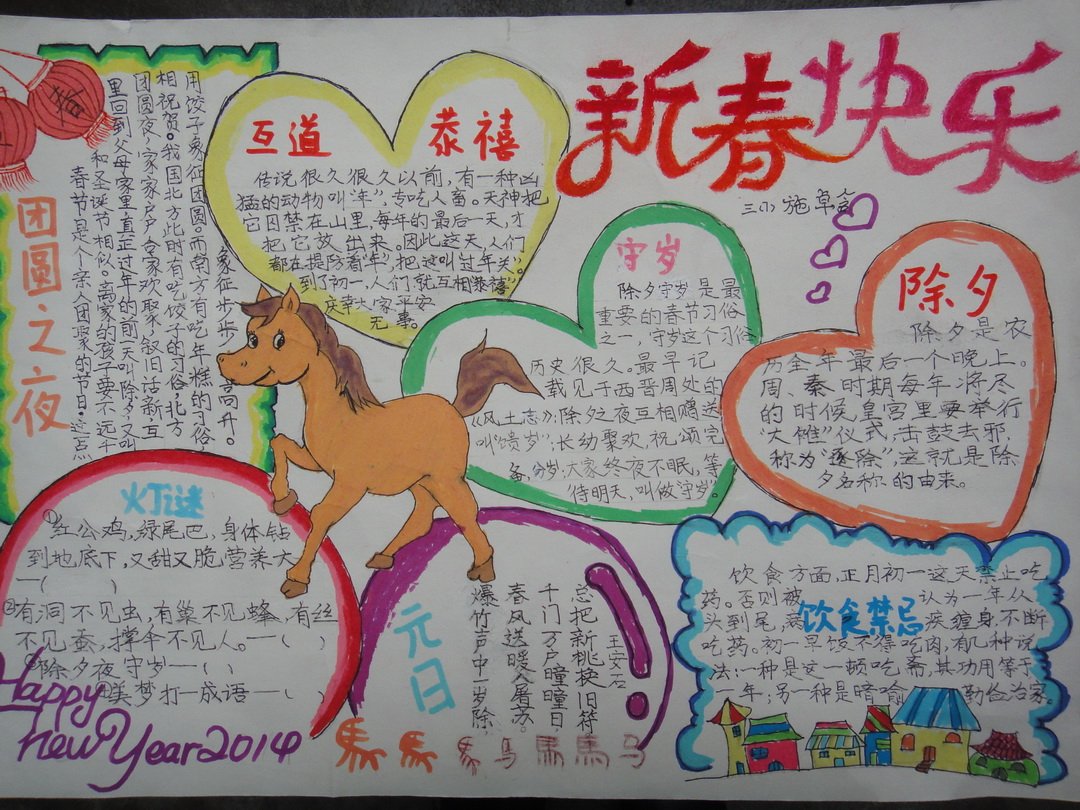 新春快乐
三(1) 施卓言
春
团圆之夜
春节是个亲人团聚的节日。这点
和圣诞节相似。离家的孩子要不远千
里回到父母家里。真正过年的前一天叫除夕，又叫
团圆夜，家家户户合家欢聚，叙旧话新互
相祝贺。我国北方此时有吃饺子的习俗，北方
用饺子象征团圆。而南方有吃年糕的习俗，
象征步步高高升。
互道恭禧
传说很久很久以前，有一种凶
猛的动物叫“年”，专吃人畜。天神把
它囚禁在山里，每年的最后一天，才
把它放出来。因此这天，人们
都在提防着“年”，把这叫过年关”。
到了初一，人们就互相恭禧”
庆幸大家平安
无事。
守岁
除夕守岁是最
重要的春节习俗
之一，守岁这个习俗
历史很久。最早记
载见于西晋周处的
《风土志》：除夕之夜互相赠送
叫“馈岁”，长幼聚欢，祝颂完
备，分岁，大家终夜不眠，等
待明天，叫做“守岁”。
除夕
除夕是农
历全年最后一个晚上。
周、秦时期每年将尽
的时候，皇宫里要举行
“大傩”仪式，击鼓去邪，
称为“逐除”，这就是除
夕名称的由来。
灯谜
①红公鸡，绿尾巴，身体钻
到地底下，又甜又脆营养大
—( )
②有洞不见虫，有巢不见蜂，有丝
不见蚕，撑伞不见人。—( )
③除夕夜守岁—( )
美梦打一成语—( )
Happy
new Year 2014
元日
王安石
爆竹声中一岁除，
春风送暖入屠苏。
千门万户曈曈日，
总把新桃换旧符
馬 馬 马 馬 馬 马
饮食禁忌
饮食方面，正月初一这天禁止吃
药。否则被 认为一年从
头到尾， 疾缠身，不断
吃药。初一早饭不得吃肉，有几种说
法：一种是这一顿吃斋，其功用等于
一年，另一种是暗喻 勤俭治家。